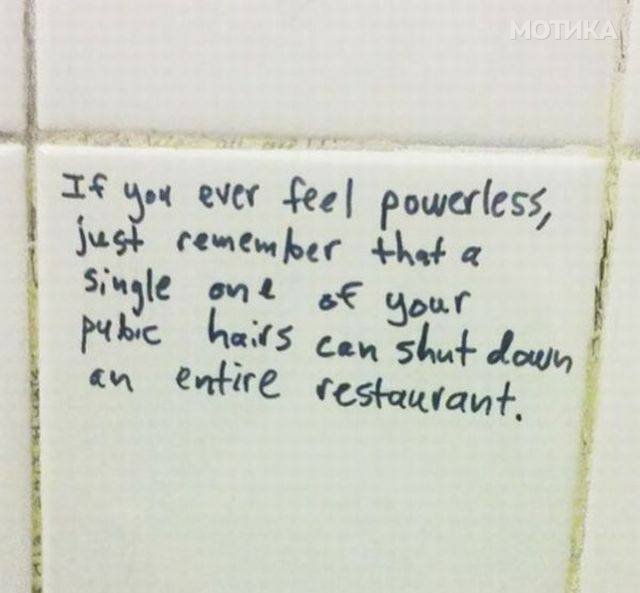 МОТИКА
If you ever feel powerless,
just remember that a
single one of your
pubic hairs can shut down
an entire restaurant.